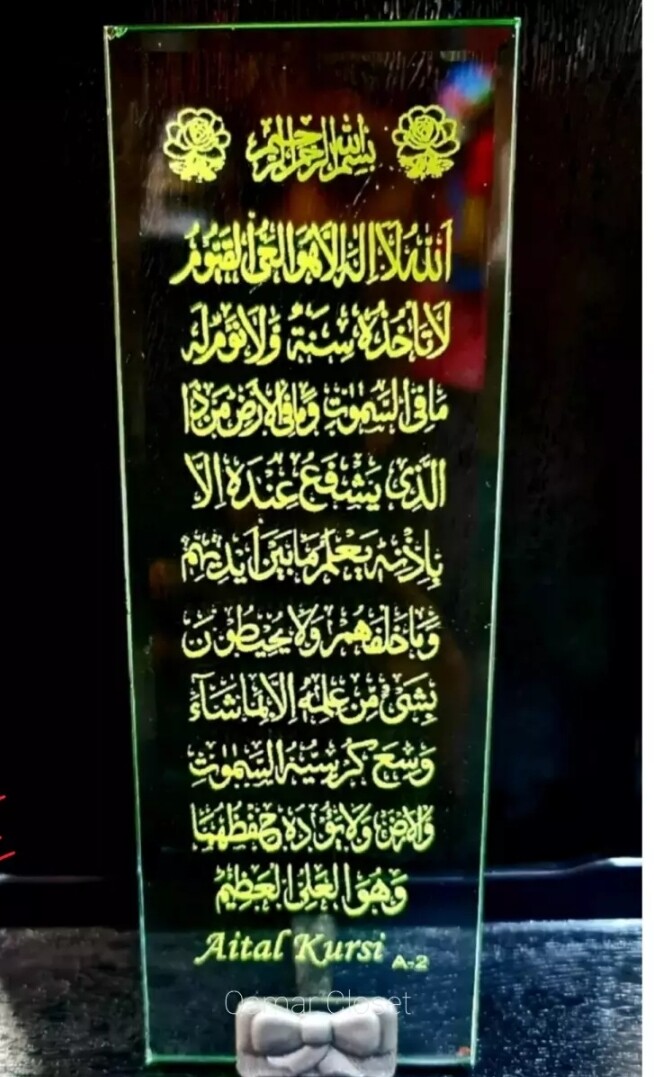 بسم الله الرحمن الرحيم
اَللهُ لَآ اِلٰهَ اِلَّا هُوَ الْحَیُّ الْقَیُّوْمُ
لَا تَاْخُذُهٗ سِنَةٌ وَّلَا نَوْمٌ لَهٗ
مَا فِی السَّمٰوٰتِ وَمَا فِی الْاَرْضِ مَنْ ذَا
الَّذِیْ یَشْفَعُ عِنْدَهٗ اِلَّا
بِاِذْنِهٖ یَعْلَمُ مَا بَیْنَ اَیْدِیْهِمْ
وَمَا خَلْفَهُمْ وَلَا یُحِیْطُوْنَ
بِشَیْءٍ مِّنْ عِلْمِهٖ اِلَّا بِمَا شَآءَ
وَسِعَ كُرْسِیُّهُ السَّمٰوٰتِ
وَالْاَرْضَ وَلَا یَئُوْدُهٗ حِفْظُهُمَا
وَهُوَ الْعَلِیُّ الْعَظِیْمُ
Aital Kursi A-2
Qamar Closet